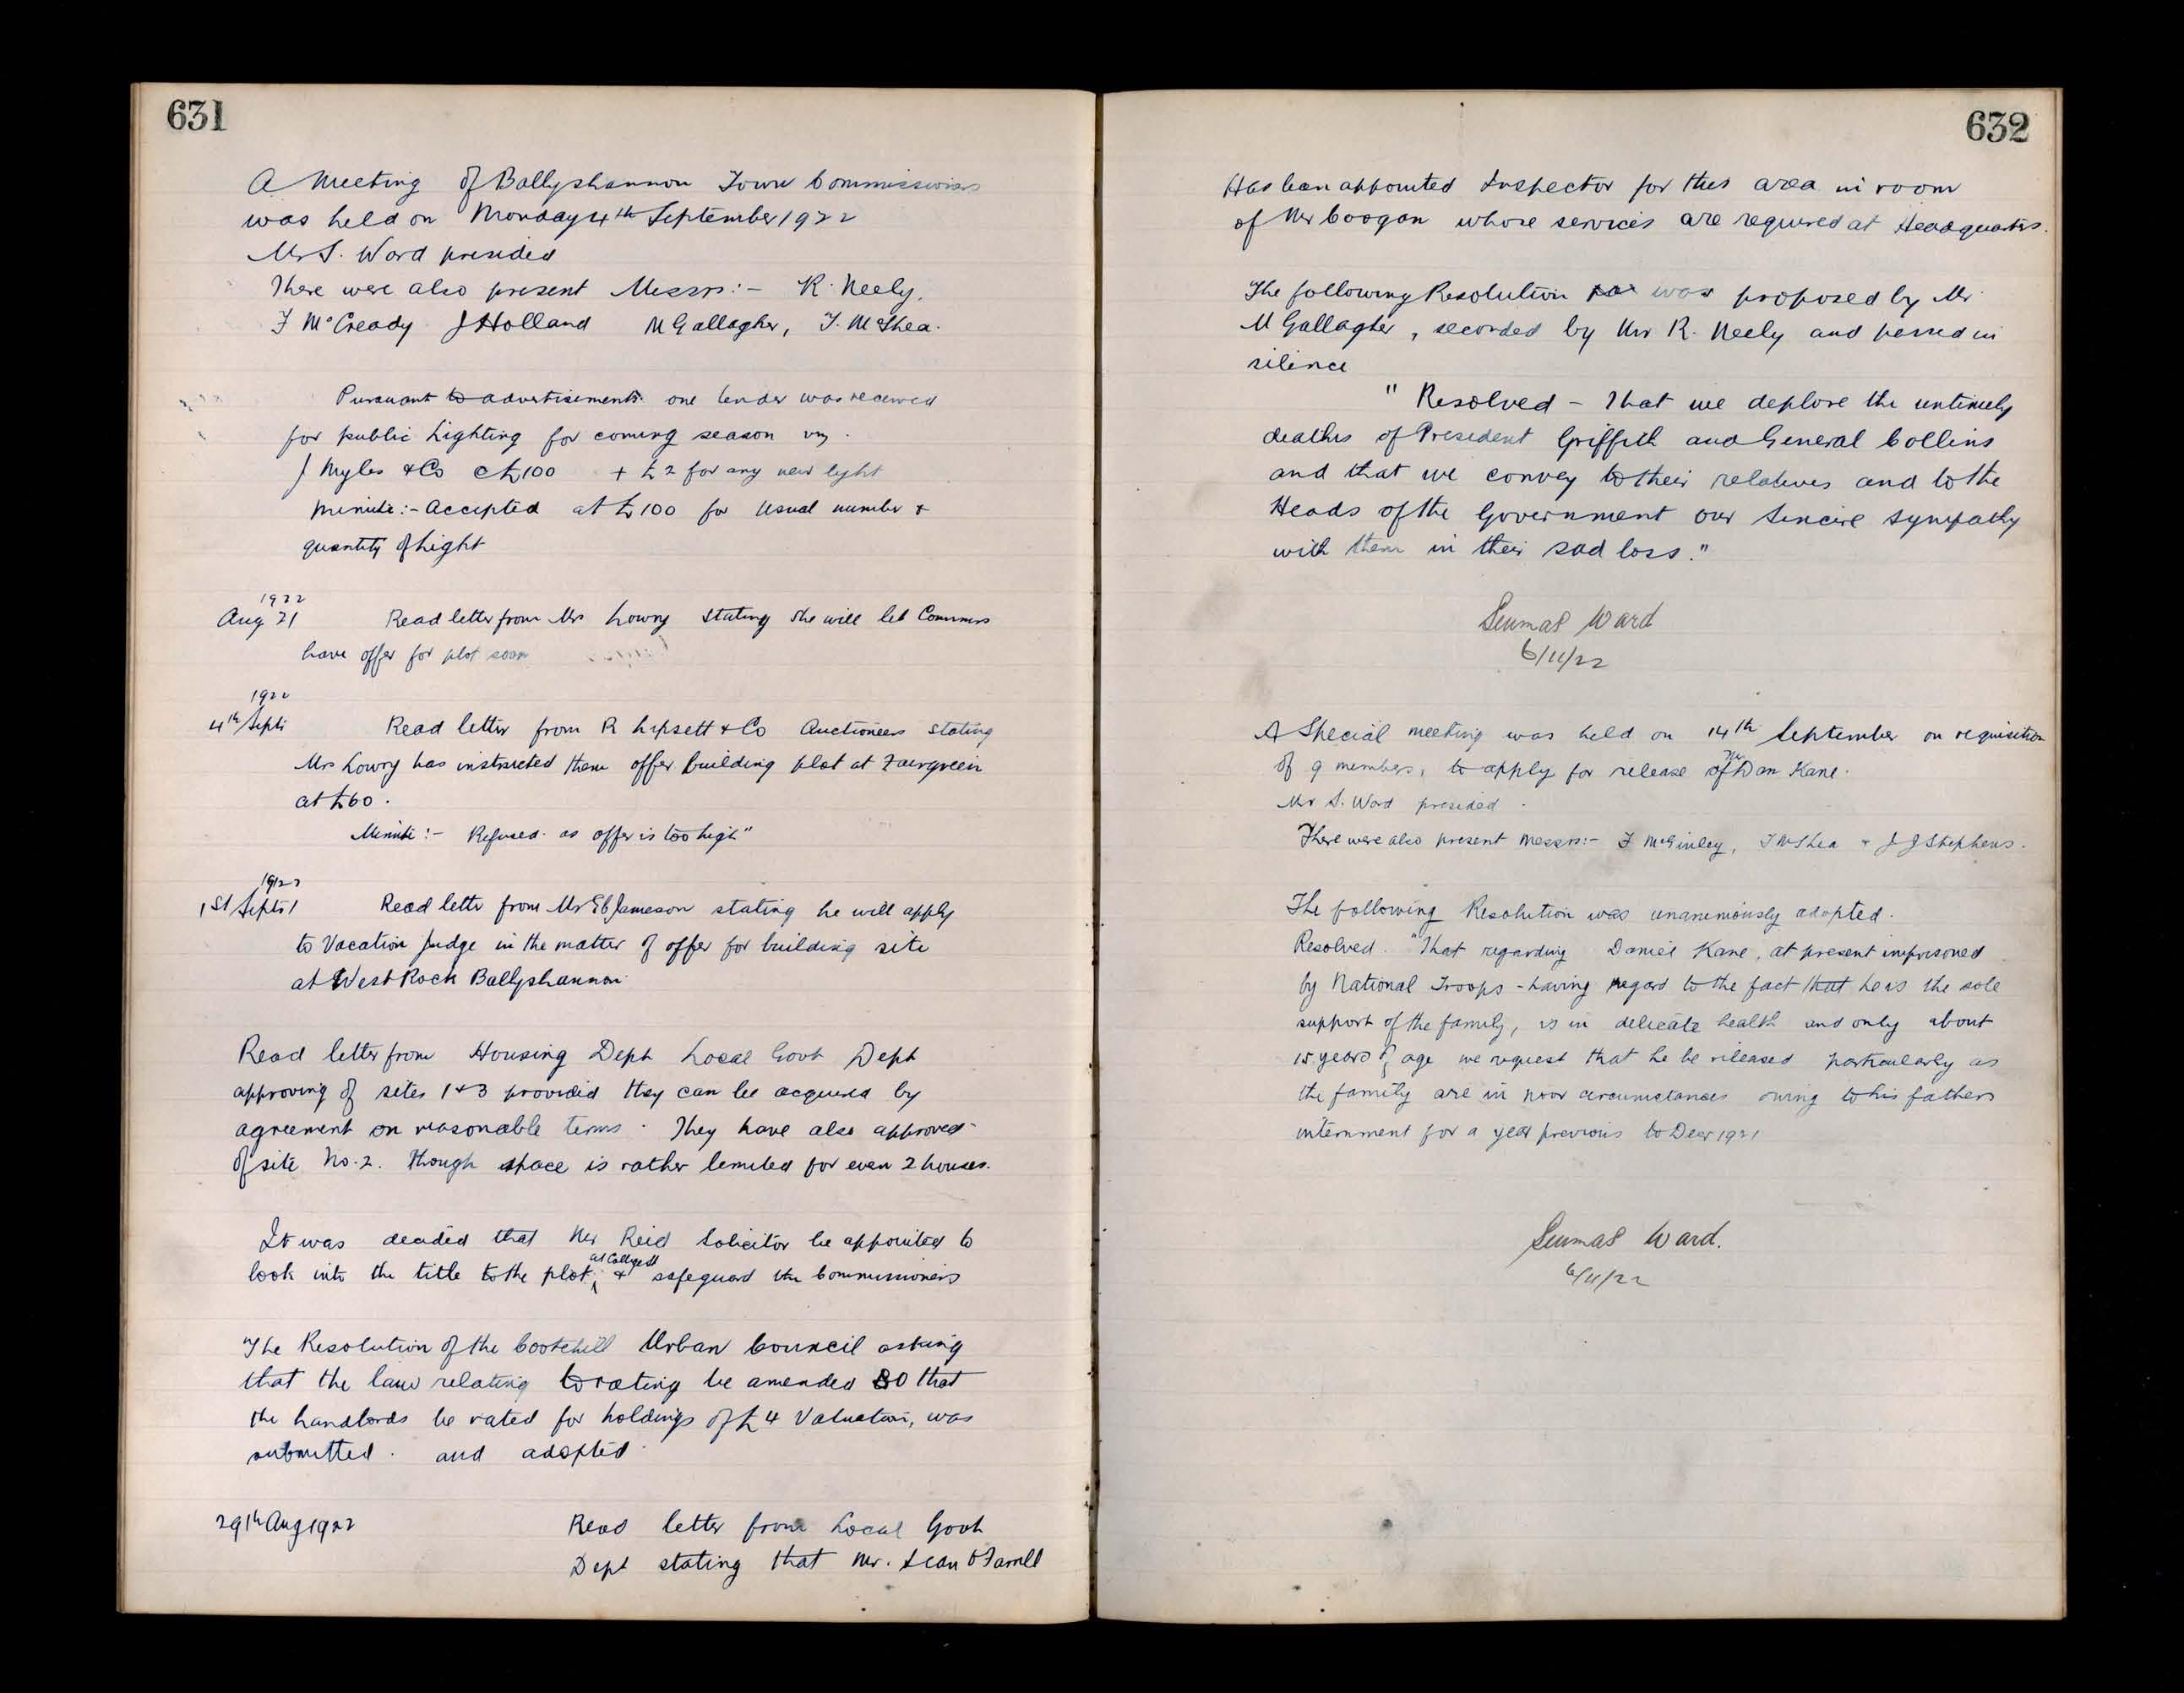 631
A Meeting of Ballyshannon Town Commissioners
was held on Monday 4th September 1922
Mr S. Ward presided
There were also present Messrs:- R. Neely,
F McCready J Holland M Gallagher, T. McShea.
Pursuant to advertisements one tender was received
for public Lighting for coming season viz.
J Myles & Co @ £100 + £2 for any new light
Minute:- Accepted at £100 for usual number &
quantity of Light
1922
Aug 21 Read letter from Mrs Lowry stating she will let Commrs
have offer for plot soon
1922
4th Septr Read letter from R Lipsett & Co Auctioneers stating
Mrs Lowry has instructed them offer building plot at Fairgreen
at £60.
Minute:- Refused as offer is too high"
1922
1st Septr Read letter from Mr Jameson stating he will apply
to Vacation Judge in the matter of offer for building site
at West Rock Ballyshannon
Read letter from Housing Dept Local Govt Dept
approving of sites 1 & 3 provided they can be acquired by
agreement on reasonable terms. They have also approved
of site No. 2. though space is rather limited for even 2 houses.
It was decided that Mr Reid Solicitor be appointed to
look into the title to the plot & safeguard the Commissioners
"The Resolution of the Cootehill Urban Council asking
that the law relating to rating be amended so that
the Landlords be rated for holdings of £4 Valuation, was
submitted. and adopted
29th Aug 1922 Read letter from Local Govt
Dept stating that Mr. Sean O'Farrell
632
Has been appointed Inspector for this area in room
of Mr Coogan whose services are required at Headquarters.
The following Resolution was proposed by Mr
M Gallagher, seconded by Mr R. Neely and passed in
silence
" Resolved - That we deplore the untimely
deaths of President Griffith and General Collins
and that we convey to their relatives and to the
Heads of the Government our Sincere Sympathy
with them in their sad loss."
Seumas Ward
6/11/22
A Special meeting was held on 14th September on requisition
of 9 members, to apply for release of Mr Dan Kane.
Mr S. Ward presided.
There were also present Messrs:- F McGinley, T McShea & J J Stephens.
The following Resolution was unanimously adopted.
Resolved. "That regarding Daniel Kane, at present imprisoned
by National Troops - having regard to the fact that he is the sole
support of the family, is in delicate health and only about
15 years of age we request that he be released particularly as
the family are in poor circumstances owing to his fathers
internment for a year previous to Decr 1921
Seumas Ward.
6/11/22